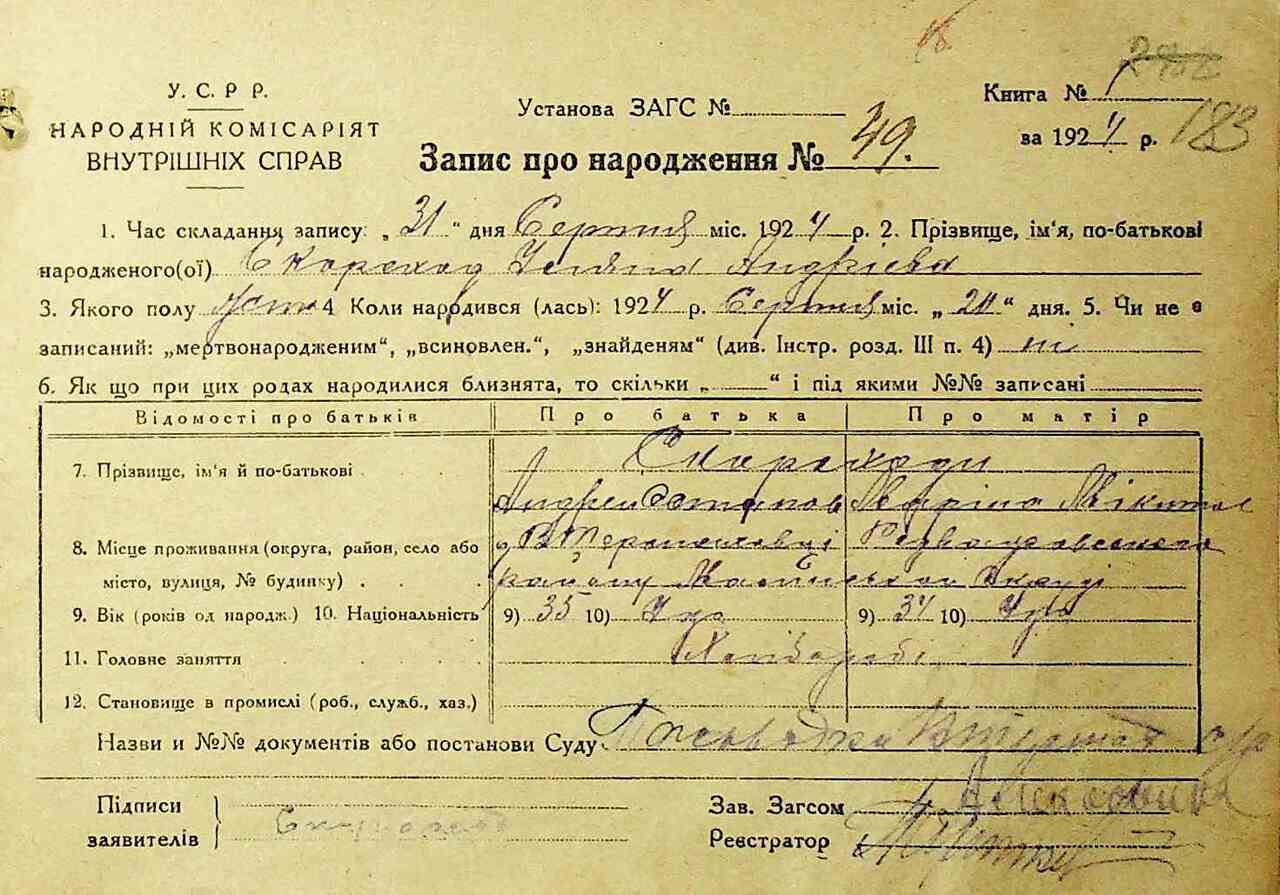 У. С. Р Р.
НАРОДНІЙ КОМІСАРІЯТ
ВНУТРІШНІХ СПРАВ
Установа ЗАГС №
Запис про народження № 49.
Книга № 1
за 1924 р. 183
1. Час складання запису: „ 31 “ дня Серпня міс. 1924 р. 2. Прізвище, ім'я, по-батькові
народженого(ої) Скороход Уляна Андрієва
3. Якого полу 4 Коли народився (лась): 1924 р. Серпня міс. „ “ дня. 5. Чи не є
записаний: „мертвонародженим“, „всиновлен.“, „знайденям“ (див. Інстр. розд. III п. 4) ні
6. Як що при цих родах народилися близнята, то скільки „ “ і під якими №№ записані
Відомості про батьків Про батька Про матір
7. Прізвище, ім'я й по-батькові Скороходи
Андрей Остапов
8. Місце проживання (округа, район, село або
місто, вулиця, № будинку) . . району Округі
9. Вік (років од народж.) 10. Національність 9) 35 10) Укр 9) 34 10) Укр
11. Головне заняття . . . . Хлібороби
12. Становище в промислі (роб., служб., хаз.)
Назви и №№ документів або постанови Суду
Підписи
заявителів Скороход
Зав. Загсом
Реєстратор